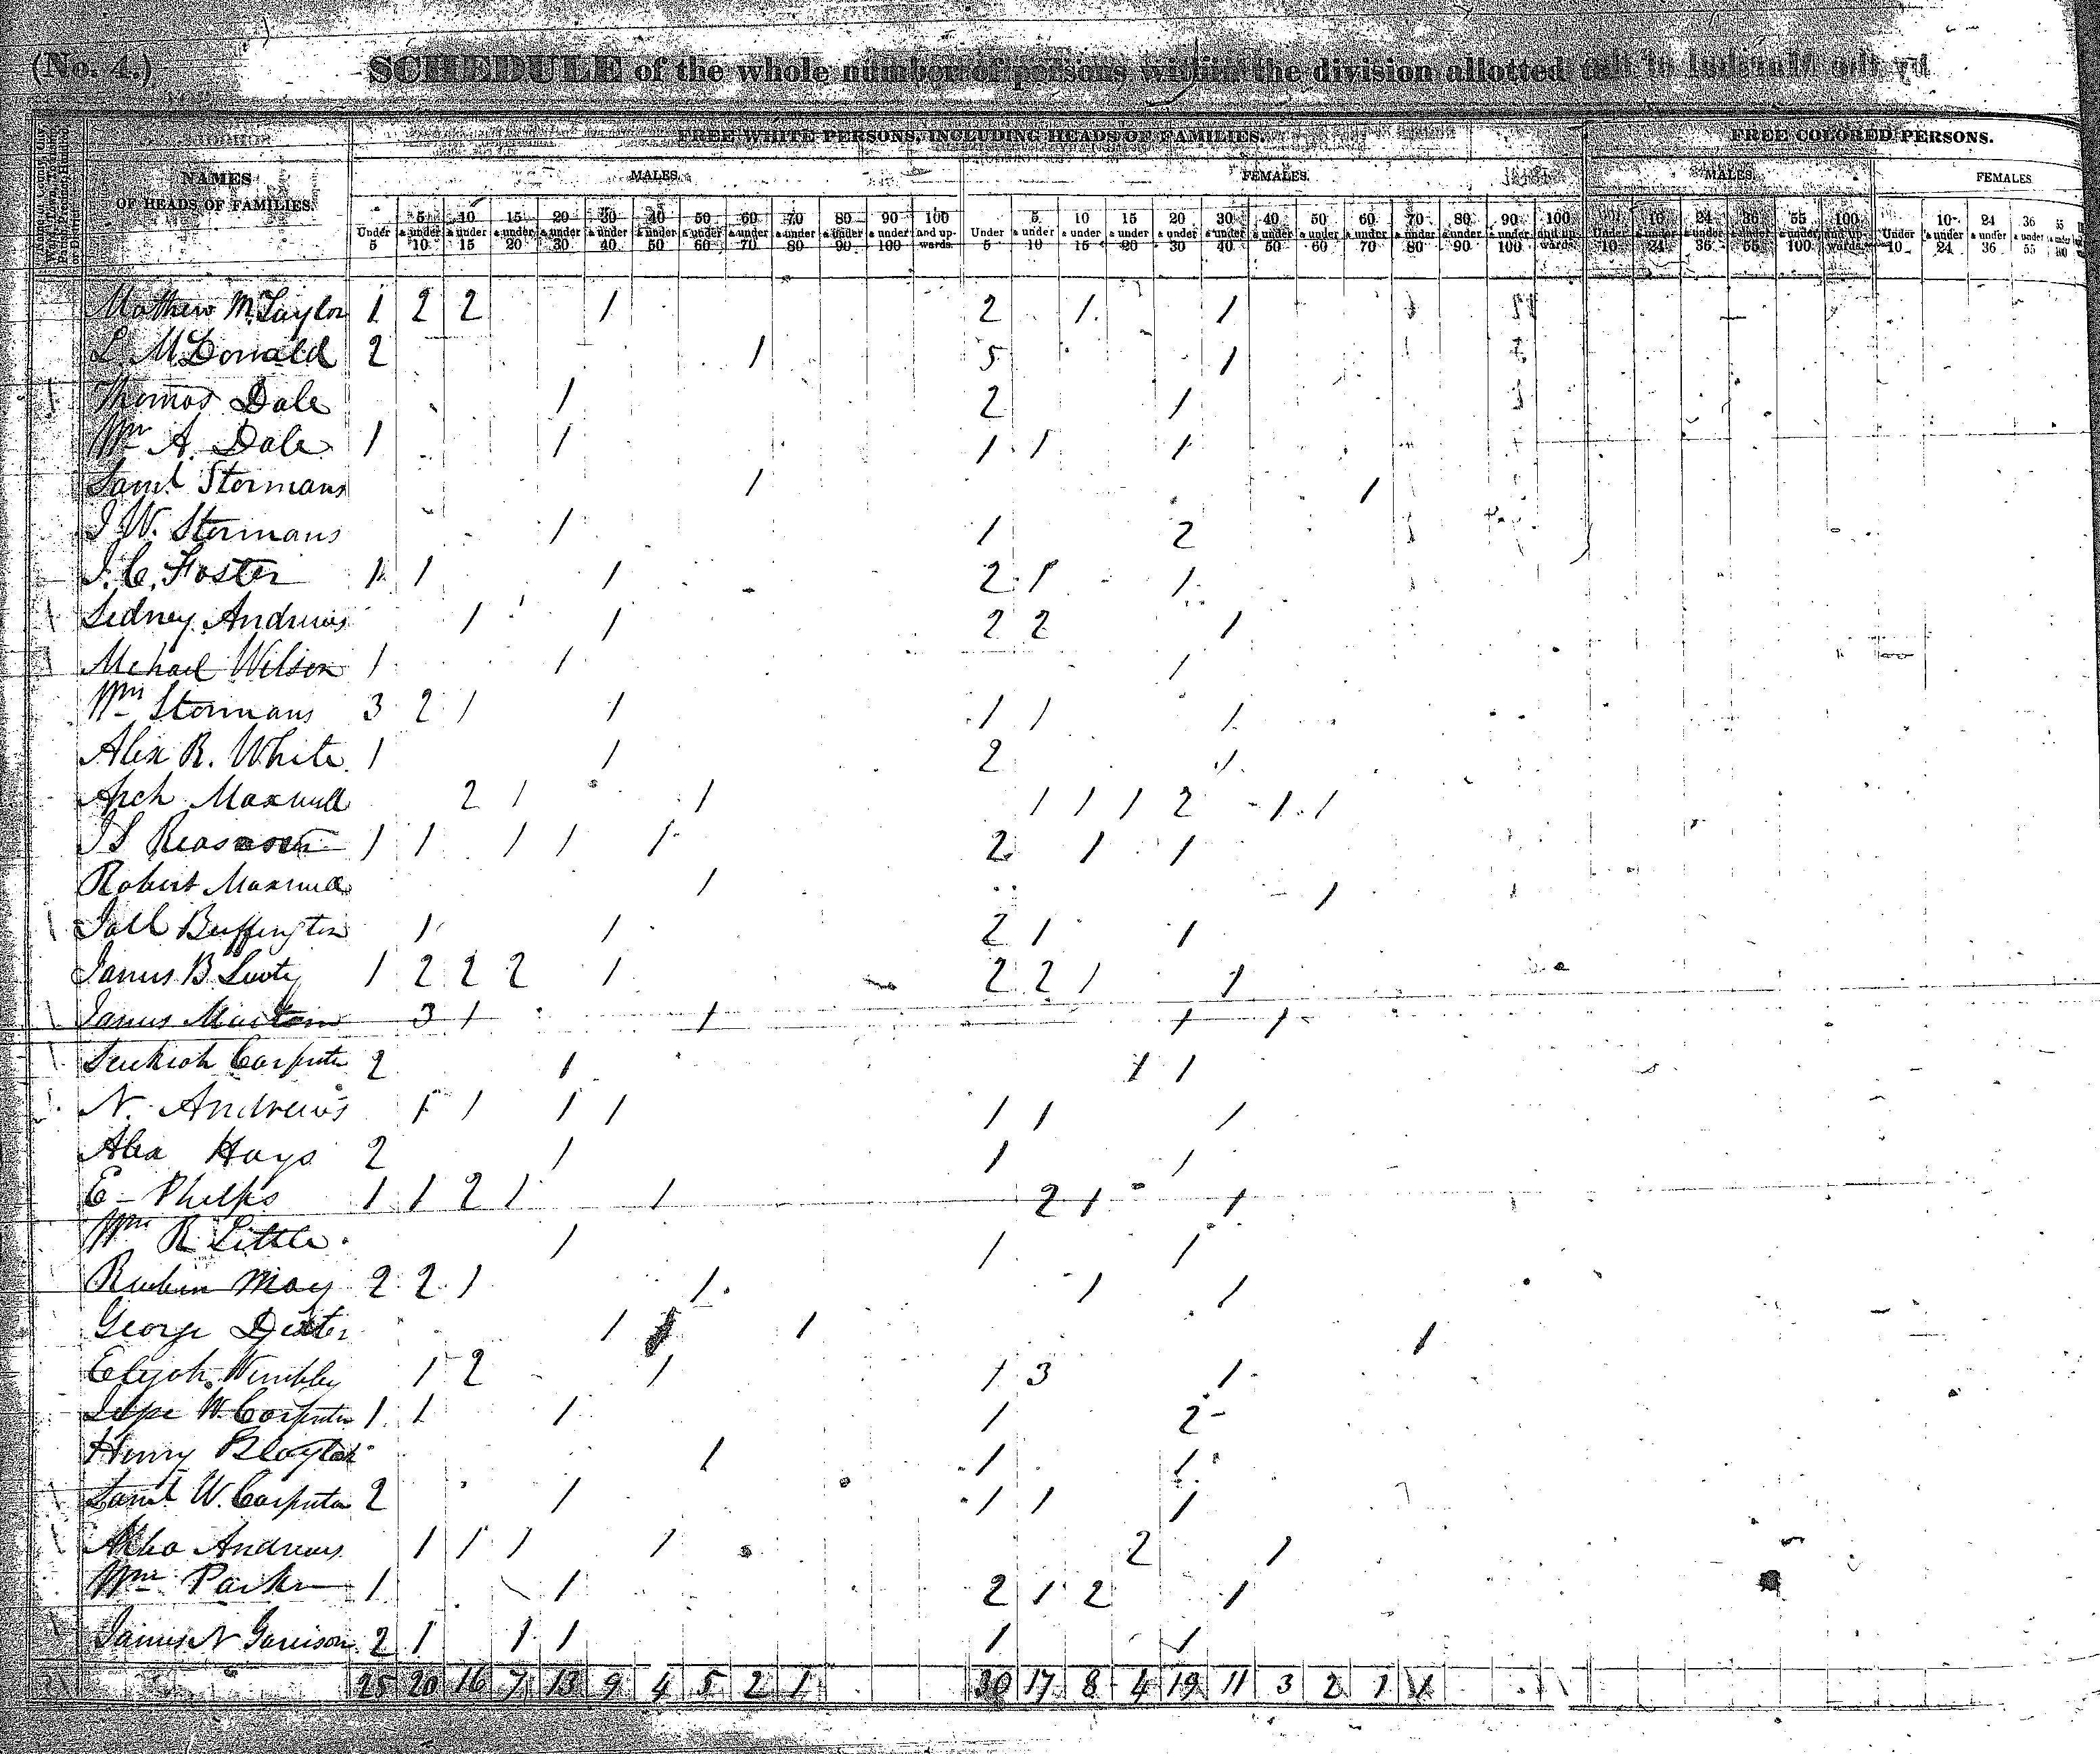 (No. 4.) SCHEDULE of the whole number of persons within the division allotted to by the Marshal of the
FREE WHITE PERSONS, INCLUDING HEADS OF FAMILIES. FREE COLORED PERSONS.
NAMES OF HEADS OF FAMILIES. MALES. FEMALES. MALES. FEMALES.
Under 5 5 & under 10 10 & under 15 15 & under 20 20 & under 30 30 & under 40 40 & under 50 50 & under 60 60 & under 70 70 & under 80 80 & under 90 90 & under 100 100 and upwards. Under 5 5 & under 10 10 & under 15 15 & under 20 20 & under 30 30 & under 40 40 & under 50 50 & under 60 60 & under 70 70 & under 80 80 & under 90 90 & under 100 100 and upwards. Under 10 10 & under 24 24 & under 36 36 & under 55 55 & under 100 100 and upwards. Under 10 10 & under 24 24 & under 36 36 & under 55 55 & under 100
Mathew M. Taylor 1 2 2 1 2 1 1
L. McDonald 2 1 5 1
Thomas Dale 1 2 1
Wm A. Dale 1 1 1 1 1
Saml Stormans 1 1
J W. Stormans 1 1 2
J. C. Foster 1 1 1 2 1 1
Sidney Andrews 1 1 2 2 1
Michael Wilson 1 1 1
Wm Stormans 3 2 1 1 1 1 1
Alex R. White 1 1 2 1
Arch Maxwell 2 1 1 1 1 1 2 1 1
J S 1 1 1 1 1 2 1 1
Robert Maxwell 1 1
Buffington 1 1 2 1 1
James B 1 2 2 2 1 2 2 1 1
James 3 1 1 1 1
Carpenter 2 1 1 1
N. Andrews 1 1 1 1 1 1 1
Alex Hays 2 1 1 1
E - Phelps 1 1 2 1 1 2 1 1
Wm R Little 1 1 1
Reuben May 2 2 1 1 1 1
George Dexter 1 1 1
Elijah 1 2 1 1 3 1
Jesse W. Carpenter 1 1 1 1 2
Henry 1 1 1
Saml W. Carpenter 2 1 1 1 1
Andrews 1 1 1 1 2 1
Wm Parker 1 1 2 1 2 1
James N Garrison 2 1 1 1 1 1
25 20 16 7 13 9 4 5 2 1 30 17 8 4 19 11 3 2 1 1